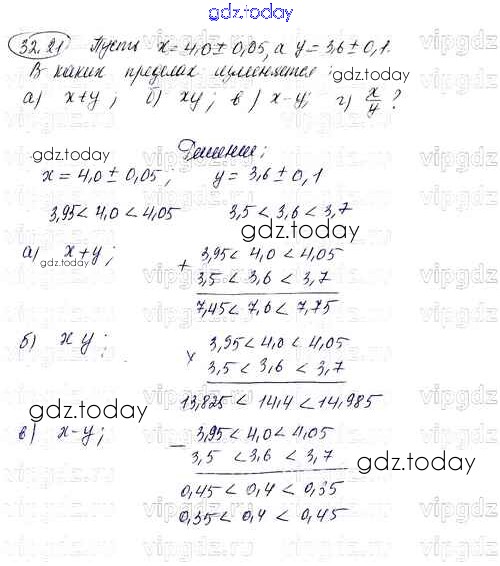 gdz.today
32.21 Пусть x = 4,0 ± 0,05, а y = 3,6 ± 0,1.
В каких пределах изменяется:
а) x+y; б) xy; в) x-y; г) x/y?
gdz.today
gdz.today
Решение;
x = 4,0 ± 0,05; y = 3,6 ± 0,1
3,95 < 4,0 < 4,05 3,5 < 3,6 < 3,7
gdz.today
а) x+y; + 3,95 < 4,0 < 4,05
gdz.today
3,5 < 3,6 < 3,7
7,45 < 7,6 < 7,75
б) xy; x 3,95 < 4,0 < 4,05
3,5 < 3,6 < 3,7
gdz.today
13,825 < 14,4 < 14,985
gdz.today
в) x-y; - 3,95 < 4,0 < 4,05
3,5 < 3,6 < 3,7
gdz.today
0,45 < 0,4 < 0,35
0,35 < 0,4 < 0,45